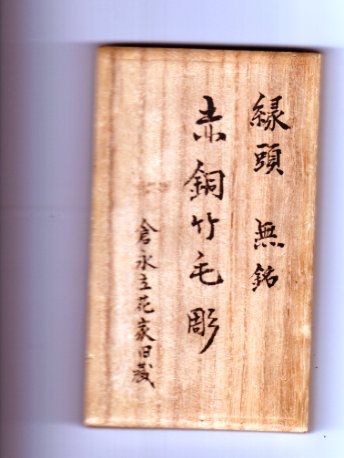 縁頭 無銘
赤銅竹毛彫
倉永立花家旧蔵